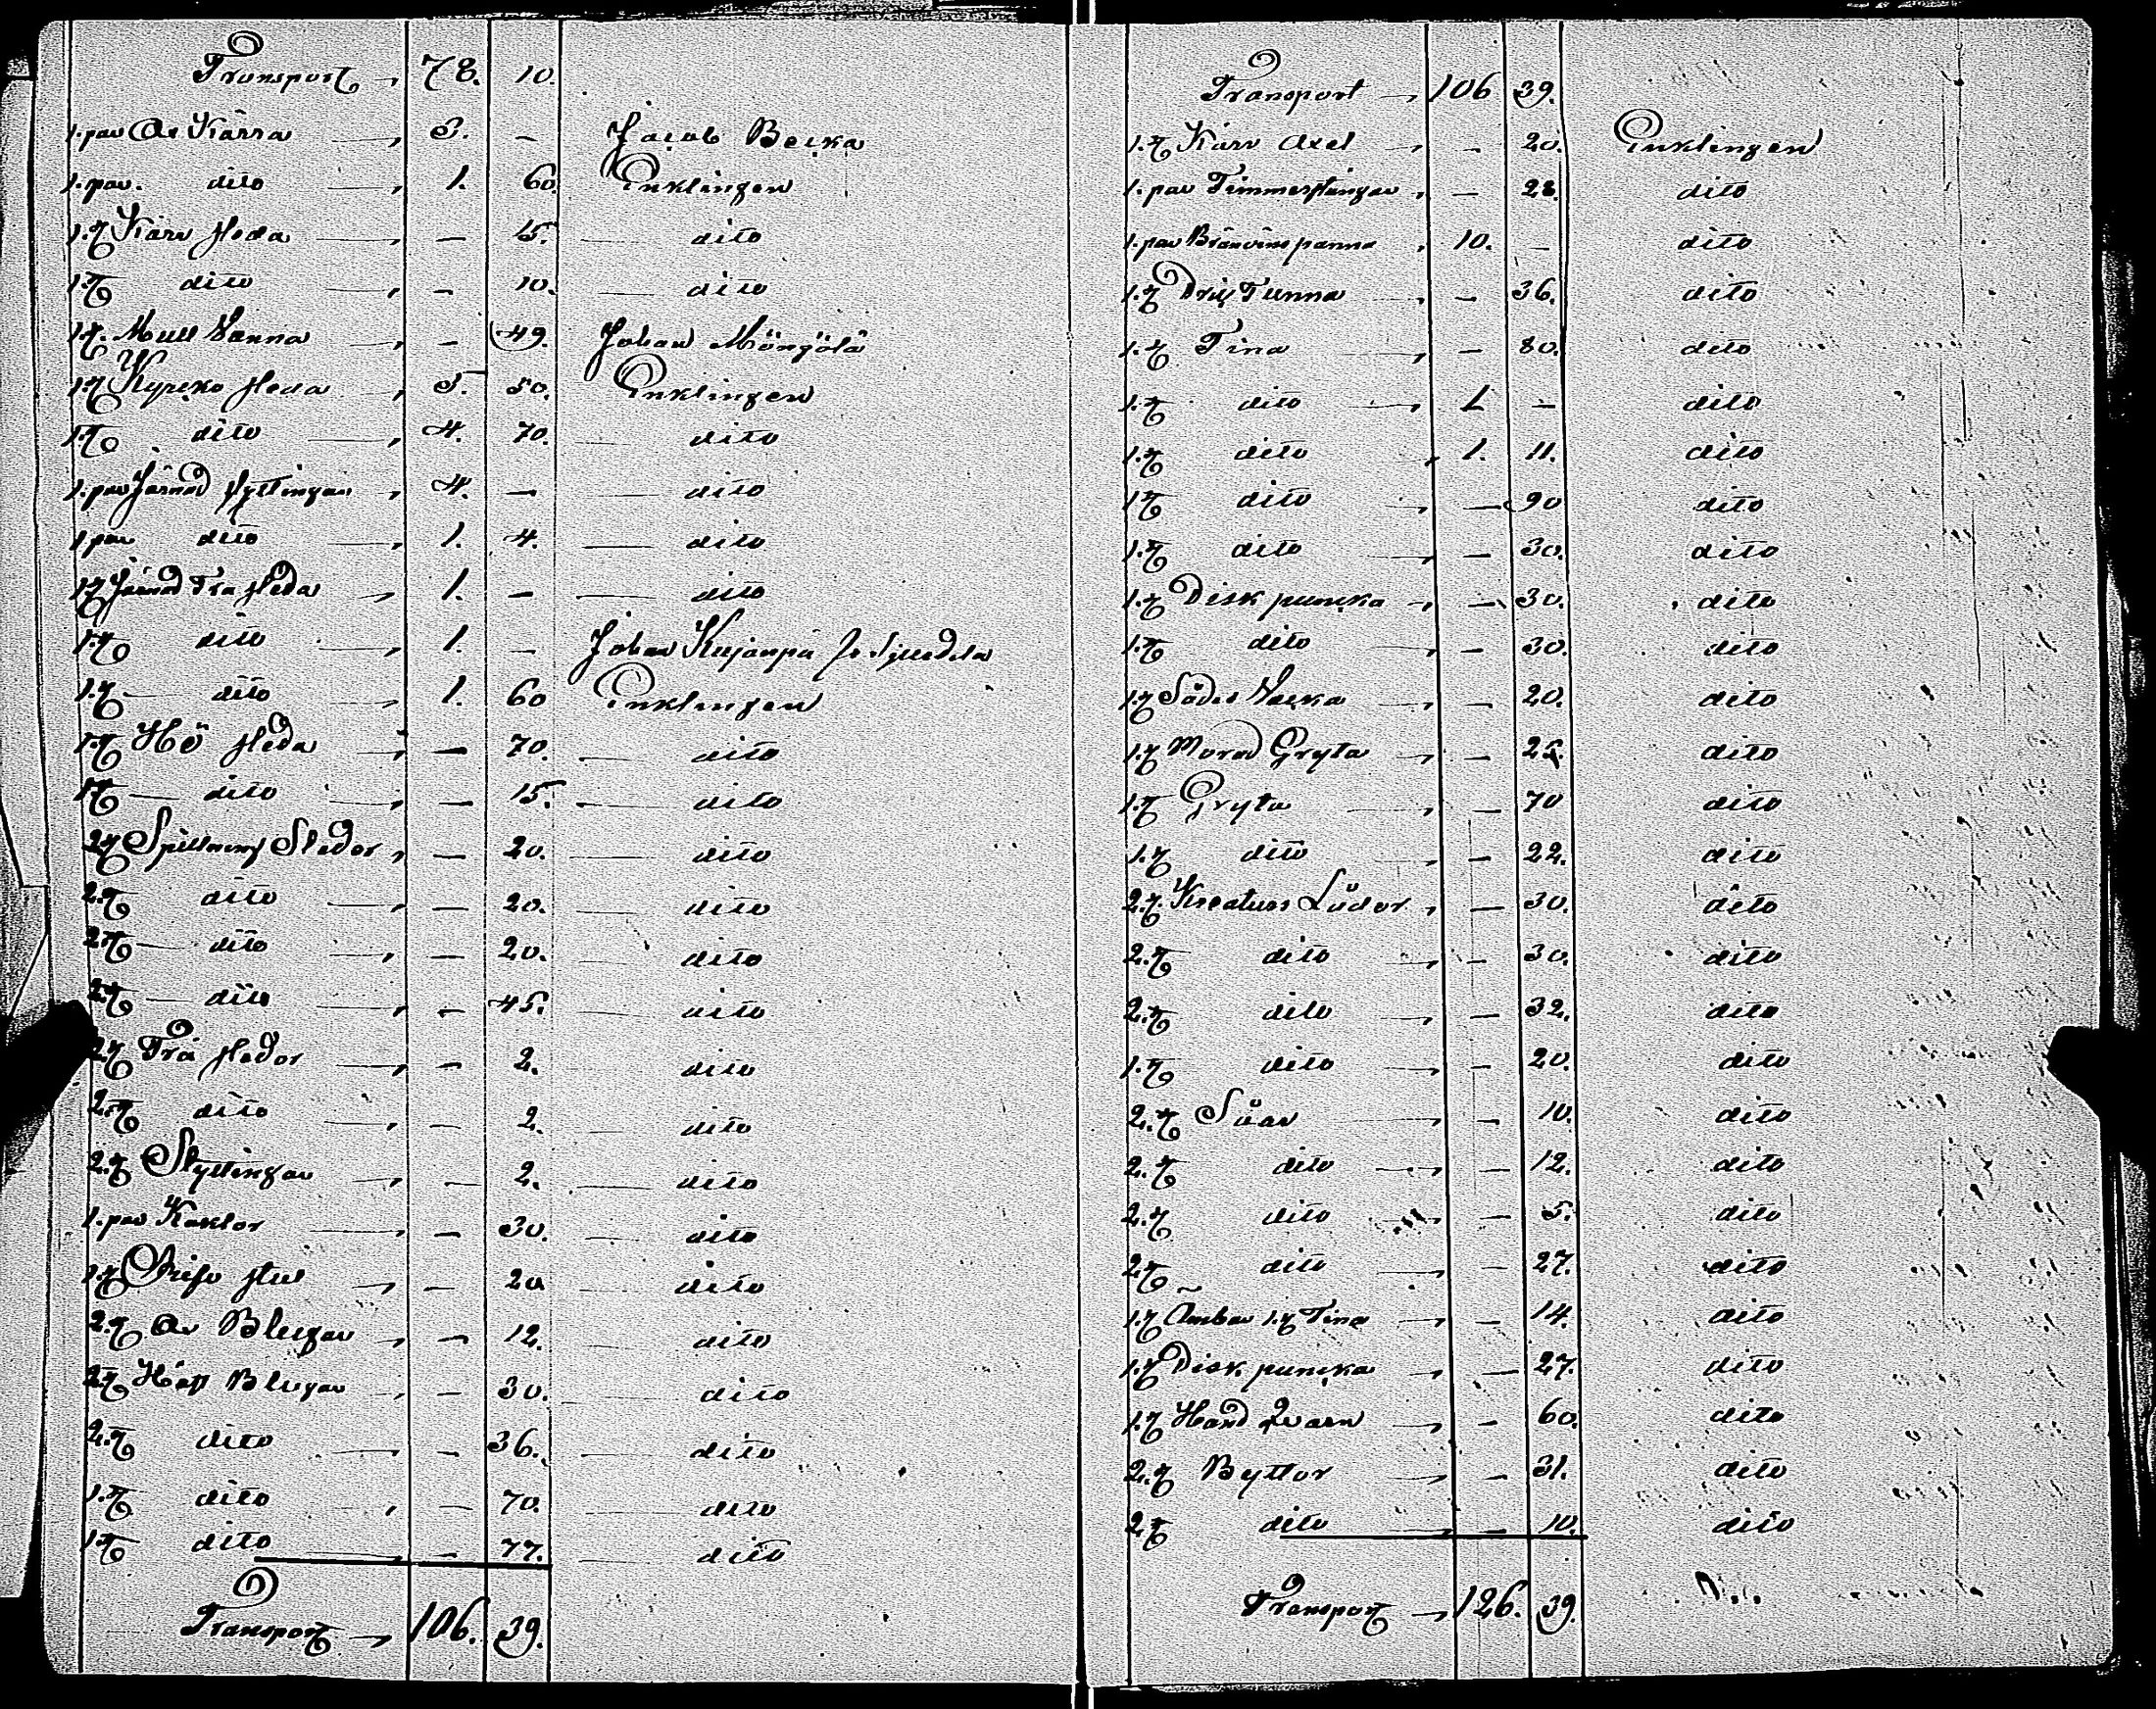 Transport 78. 10.
1. par Ar Kärra 3. — Jacob Backa
1. par. dito 1. 60. Enklingen
1. st Kärr släda — 15. dito
1. st dito — 10. dito
1. st. Mull Vanna — 49. Johan Möngölä
1. st Kyrcko släda 5. 50. Enklingen
1. st dito 4. 70. dito
1. par Järnad styttingar 4. — dito
1 par dito 1. 4. dito
1. st Järnad Trä släda 1. — dito
1. st dito 1. — Johan
1. st dito 1. 60 Enklingen
1. st Hö släda — 70. dito
1. st dito — 15. dito
2. st Spillning Slädor — 20. dito
2. st dito — 20. dito
2. st dito — 20. dito
2. st dito — 45. dito
2. st Trä slädor — 2. dito
2. st dito — 2. dito
2. st Styttingar — 2. dito
1. par — 30. dito
1. st — 20 dito
2. st Ar — 12. dito
2. st — 30. dito
2. st dito — 36. dito
1. st dito — 70. dito
1. st dito — 77. dito
Transport 106. 39.
Transport 106 39.
1. st Kärr Axel — 20. Enklingen
1. par Timmerstängar — 28. dito
1. par Bränvins panna 10. — dito
1. st Tunna — 36. dito
1. st Tina — 80. dito
1. st dito 1 — dito
1. st dito 1. 11. dito
1. st dito — 90 dito
1. st dito — 30. dito
1. st Disk puncka — 30. dito
1. st dito — 30. dito
1. st Sådes Vacka — 20. dito
1. st Murad Gryta — 25. dito
1. st Gryta — 70 dito
1. st dito — 22. dito
2. st Kreaturs Lådor — 30. dito
2. st dito — 30. dito
2. st dito — 32. dito
1. st dito — 20. dito
2. st Såar — 10. dito
2. st dito — 12. dito
2. st dito — 5. dito
2. st dito — 27. dito
1. st Ämbar 1. st Tina — 14. dito
1. st Disk puncka — 27. dito
1. st Hand Qvarn — 60. dito
2. st Byttor — 31. dito
2. st dito — 10. dito
Transport 126. 39.